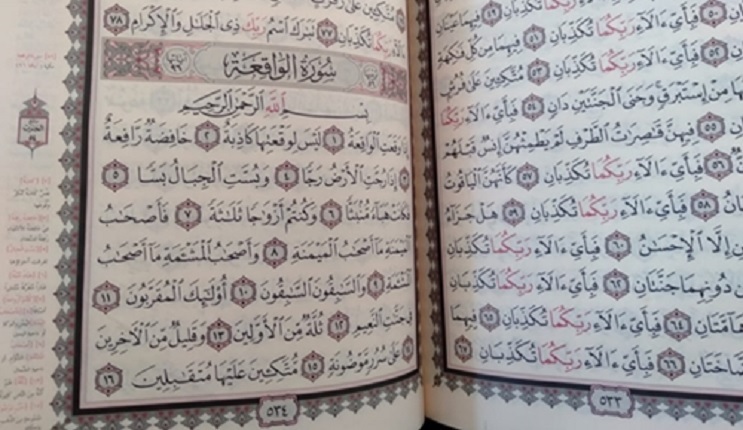 رَبِّكُمَا تُكَذِّبَانِ ٤٩ فِيهِمَا عَيْنَانِ
٥٠ فَبِأَيِّ ءَالَآءِ رَبِّكُمَا تُكَذِّبَانِ ٥١ فِيهِمَا مِن كُلِّ فَٰكِهَةٍ
٥٢ فَبِأَيِّ ءَالَآءِ رَبِّكُمَا تُكَذِّبَانِ ٥٣ مُتَّكِـِٔينَ عَلَىٰ فُرُشٍۭ
مِنْ إِسْتَبْرَقٍ وَجَنَى ٱلْجَنَّتَيْنِ دَانٍ ٥٤ فَبِأَيِّ ءَالَآءِ رَبِّكُمَا
٥٥ فِيهِنَّ قَٰصِرَٰتُ ٱلطَّرْفِ لَمْ يَطْمِثْهُنَّ إِنسٌ قَبْلَهُمْ
٥٦ فَبِأَيِّ ءَالَآءِ رَبِّكُمَا تُكَذِّبَانِ ٥٧ كَأَنَّهُنَّ ٱلْيَاقُوتُ
٥٨ فَبِأَيِّ ءَالَآءِ رَبِّكُمَا تُكَذِّبَانِ ٥٩ هَلْ جَزَآءُ
إِلَّا ٱلْإِحْسَٰنُ ٦٠ فَبِأَيِّ ءَالَآءِ رَبِّكُمَا تُكَذِّبَانِ
دُونِهِمَا جَنَّتَانِ ٦٢ فَبِأَيِّ ءَالَآءِ رَبِّكُمَا تُكَذِّبَانِ
٦٤ فَبِأَيِّ ءَالَآءِ رَبِّكُمَا تُكَذِّبَانِ ٦٥ فِيهِمَا
٦٦ فَبِأَيِّ ءَالَآءِ رَبِّكُمَا تُكَذِّبَانِ ٦٧
٥٣٣
مُتَّكِـِٔينَ عَلَىٰ رَفْرَفٍ
ءَالَآءِ رَبِّكُمَا تُكَذِّبَانِ ٧٧ تَبَٰرَكَ ٱسْمُ رَبِّكَ ذِى ٱلْجَلَٰلِ وَٱلْإِكْرَامِ ٧٨
سُورَةُ الوَاقِعَةِ
بِسْمِ ٱللَّهِ ٱلرَّحْمَٰنِ ٱلرَّحِيمِ
إِذَا وَقَعَتِ ٱلْوَاقِعَةُ ١ لَيْسَ لِوَقْعَتِهَا كَاذِبَةٌ ٢ خَافِضَةٌ رَّافِعَةٌ
٣ إِذَا رُجَّتِ ٱلْأَرْضُ رَجًّا ٤ وَبُسَّتِ ٱلْجِبَالُ بَسًّا ٥
فَكَانَتْ هَبَآءً مُّنۢبَثًّا ٦ وَكُنتُمْ أَزْوَٰجًا ثَلَٰثَةً ٧ فَأَصْحَٰبُ
ٱلْمَيْمَنَةِ مَآ أَصْحَٰبُ ٱلْمَيْمَنَةِ ٨ وَأَصْحَٰبُ ٱلْمَشْـَٔمَةِ مَآ أَصْحَٰبُ
ٱلْمَشْـَٔمَةِ ٩ وَٱلسَّٰبِقُونَ ٱلسَّٰبِقُونَ ١٠ أُو۟لَٰٓئِكَ ٱلْمُقَرَّبُونَ ١١
فِى جَنَّٰتِ ٱلنَّعِيمِ ١٢ ثُلَّةٌ مِّنَ ٱلْأَوَّلِينَ ١٣ وَقَلِيلٌ مِّنَ ٱلْءَاخِرِينَ
١٤ عَلَىٰ سُرُرٍ مَّوْضُونَةٍ ١٥ مُّتَّكِـِٔينَ عَلَيْهَا مُتَقَٰبِلِينَ ١٦
٥٣٤